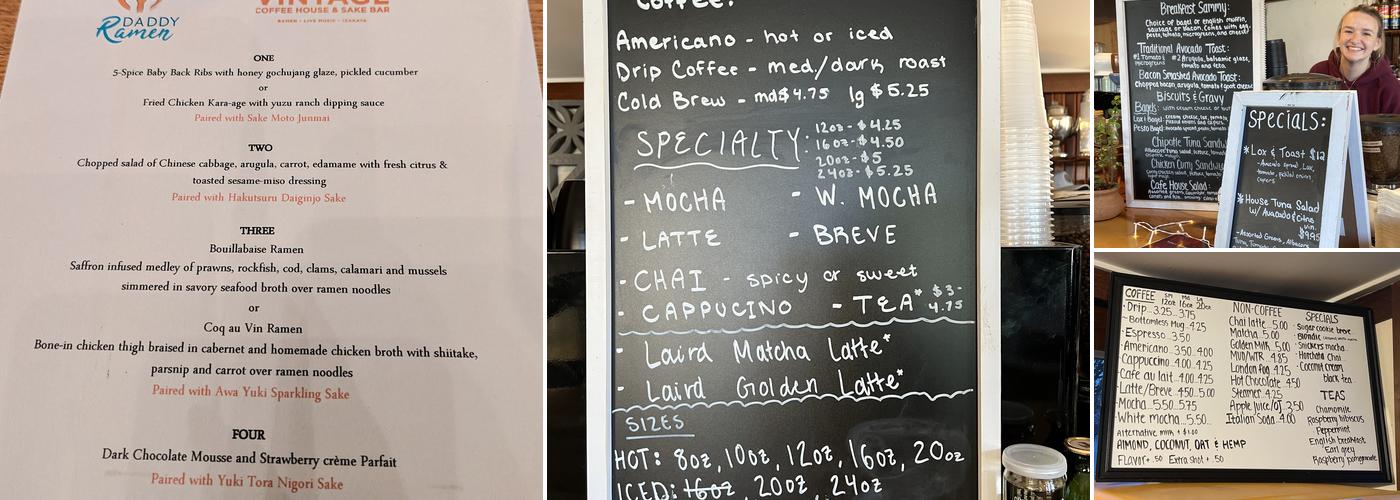 DADDY
Ramen
VINTAGE
COFFEE HOUSE & SAKE BAR
RAMEN • LIVE MUSIC • IZAKAYA
ONE
5-Spice Baby Back Ribs with honey gochujang glaze, pickled cucumber
or
Fried Chicken Kara-age with yuzu ranch dipping sauce
Paired with Sake Moto Junmai
TWO
Chopped salad of Chinese cabbage, arugula, carrot, edamame with fresh citrus &
toasted sesame-miso dressing
Paired with Hakutsuru Daiginjo Sake
THREE
Bouillabaise Ramen
Saffron infused medley of prawns, rockfish, cod, clams, calamari and mussels
simmered in savory seafood broth over ramen noodles
or
Coq au Vin Ramen
Bone-in chicken thigh braised in cabernet and homemade chicken broth with shiitake,
parsnip and carrot over ramen noodles
Paired with Awa Yuki Sparkling Sake
FOUR
Dark Chocolate Mousse and Strawberry crème Parfait
Paired with Yuki Tora Nigori Sake
Coffee:
Americano - hot or iced
Drip Coffee - med/dark roast
Cold Brew - md $4.75 lg $5.25
SPECIALTY:
12oz - $4.25
16oz - $4.50
20oz - $5
24oz - $5.25
- MOCHA - W. MOCHA
- LATTE - BREVE
- CHAI - spicy or sweet
- CAPPUCINO - TEA* $3-4.75
- Laird Matcha Latte*
- Laird Golden Latte*
SIZES
HOT: 8oz, 10oz, 12oz, 16oz, 20oz
ICED: 16oz, 20oz, 24oz
Breakfast Sammy:
Choice of bagel or english muffin,
Traditional Avocado Toast:
Bacon Smashed Avocado Toast:
Chopped bacon, arugula, tomato & goat cheese
Biscuits & Gravy
Bagels:
Lox & Bagel:
Pesto Bagel:
Chipotle Tuna Sandw
Chicken Curry Sandw
Cafe House Salad:
SPECIALS:
* Lox & Toast $12
* House Tuna Salad
w/ Avocado & Citrus
$9.95
- Assorted Greens, Albacore
COFFEE
12oz 16oz 20oz
Drip...3.25...3.75
Bottomless Mug..4.25
Espresso...3.50
Americano...3.50..4.00
Cappuccino...4.00..4.25
Cafe au lait...4.00..4.25
Latte/Breve..4.50...5.00
Mocha...5.50..5.75
White mocha...5.50...
Alternative milk + $1.00
ALMOND, COCONUT, OAT & HEMP
Flavor + .50 Extra shot + .50
NON-COFFEE
Chai latte...5.00
Matcha...5.00
Golden Milk..5.00
MUD/WTR..4.85
London Fog..4.25
Hot Chocolate..4.50
Steamer..4.25
Apple juice/OJ..2.50
Italian Soda..4.00
SPECIALS
Sugar cookie breve
Blondie
Snickers mocha
Horchata Chai
Coconut cream
black tea
TEAS
Chamomile
Raspberry hibiscus
Peppermint
English breakfast
Earl grey
Raspberry pomegranate